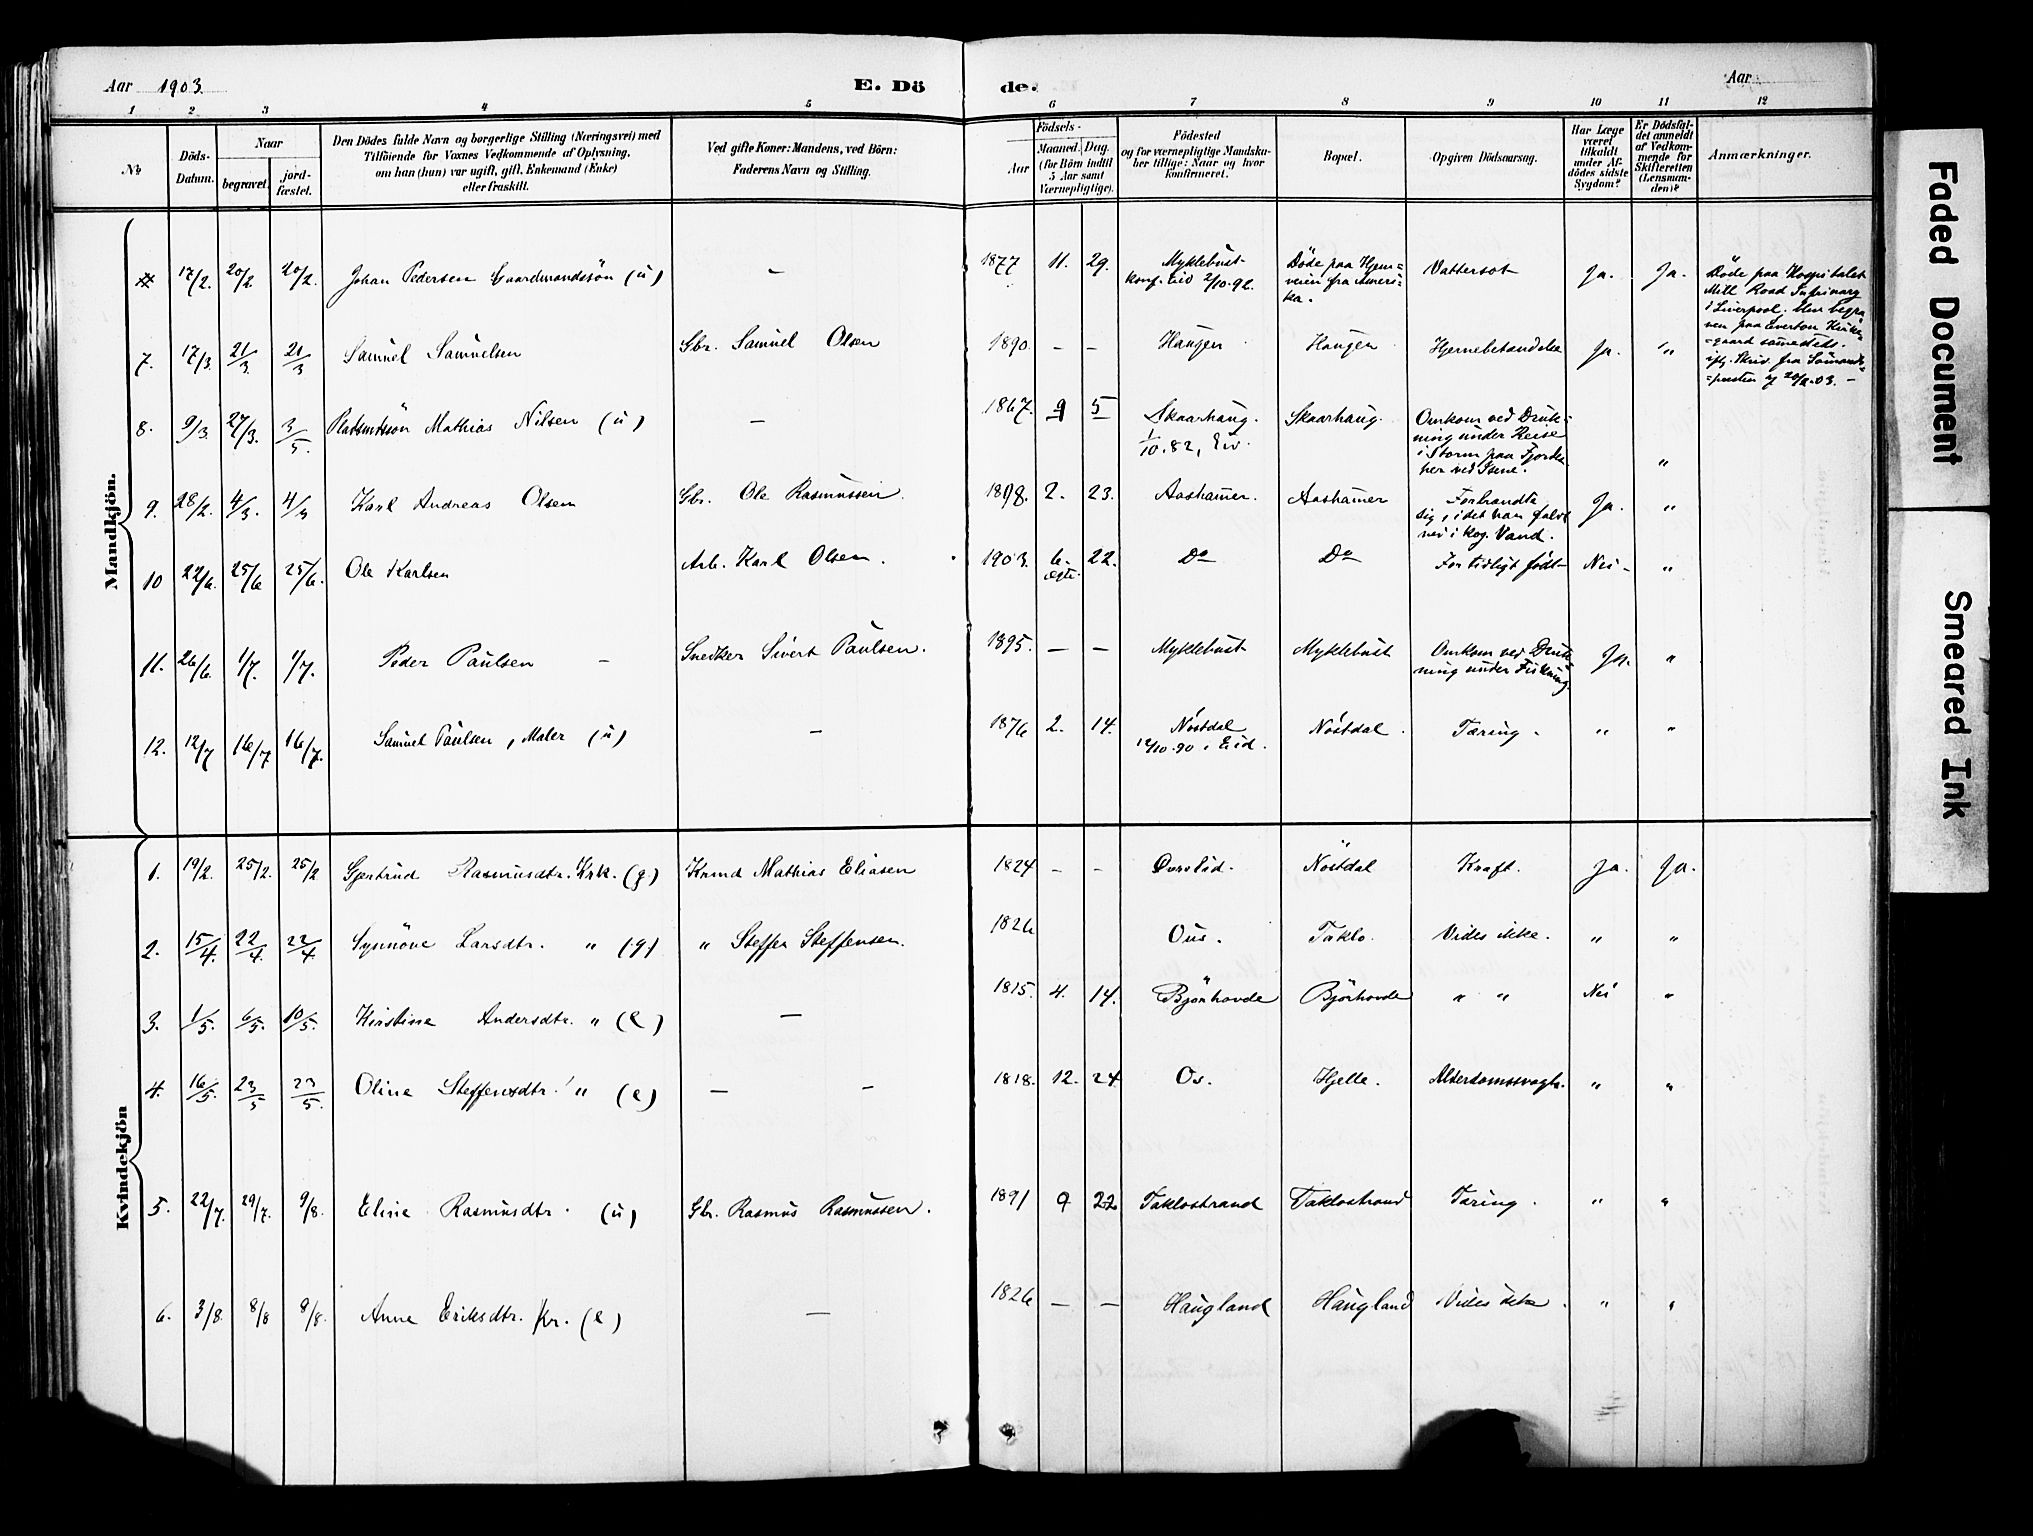 Aar 1903.
E. Döde.
Aar
1 2 3 4 5 6 7 8 9 10 11 12
№
Döds-Datum.
Naar
begravet.
jord-fæstet.
Den Dödes fulde Navn og borgerlige Stilling (Næringsvei) med
Tilföiende for Voxnes Vedkommende af Oplysning,
om han (hun) var ugift, gift, Enkemand (Enke)
eller fraskilt.
Ved gifte Koner: Mandens, ved Börn:
Faderens Navn og Stilling.
Födsels-
Aar
Maaned. Dag.
(for Börn indtil
5 Aar samt
Værnepligtige).
Födested
og for værnepligtige Mandska-
ber tillige: Naar og hvor
konfirmeret.
Bopæl.
Opgiven Dödsaarsag.
Har Læge
været
tilkaldt
under Af-
dödes sidste
Sygdom?
Er Dödsfal-
det anmeldt
af Vedkom-
mende for
Skifteretten
(Lensman-
den)?
Anmærkninger.
Mandkjön.
17/2. 20/2 20/2. Johan Pedersen (u) — 1877 11. 29. Myklebust
konf. Eid 2/10.92.
Döde paa Hjem=
veien fra Ameri=
ka.
Vattersot Ja. Ja.
Döde paa Hospitalet
Mill Road Infirmary
i Liverpool. blev begra
ven paa Everton Kirke
=gaard sammesteds.
7. 17/3. 21/3 21/3 Samuel Samuelsen Gbr. Samuel Olsen 1890. — — Haugen Haugen Ja. "
8. 9/3. 27/3. 3/5. Mathias Nilsen (u) — 1867. 9 5 Skaarhaug.
1/10.82, Eid.
Skaarhaug.
Omkom ved Druk=
ning under Reise
i Storm paa Fjorden
her ved
"
9. 28/2. 4/3. 4/3 Karl Andreas Olsen Gbr. Ole Rasmussen. 1898. 2. 23. Aashamer. Aashamer
Forbrandte
sig, idet han faldt
ned i kog. Vand.
Ja. "
10 22/6. 25/6 25/6. Ole Karlsen Arb. Karl Olsen. 1903. 6. 22. Do Do For tidligt födt Nei "
ægte.
11. 26/6. 1/7. 1/7. Peder Paulsen — Snedker Sivert Paulsen. 1895. — — Myklebust Myklebust
Omkom ved Druk
ning under Fiskning.
Ja. "
12. 12/7 16/7 16/7. Samuel Paulsen, Maler (u) — 1876 2. 14. Nöstdal
12/10.90 i Eid.
Nöstdal. Tæring. " "
Kvindekjön
1. 19/2. 25/2. 25/2 Gjertrud Rasmusdtr. Krk. (g.) Kmnd Mathias Eliasen 1824 — — Nöstdal Kraft. Ja. Ja.
2. 15/4. 22/4. 22/4 Synnöve Larsdtr. " (g.) " Steffen Steffensen. 1826 Ous. Taklo. Vides ikke. " "
3. 1/5. 6/5. 10/5. Kristine Andersdtr. " (e) — 1815. 4. 14. Björhovde Björhovde " " Nei "
4. 16/5. 23/5 23/5. Oline Steffensdtr. " (e) — — 1818. 12. 24 Os. Hjelle. Alderdomssvagh. " "
5. 22/7. 29/7. 9/8. Eline Rasmusdtr. (u) Gbr. Rasmus Rasmussen. 1891 9 22 Taklostrand Taklostrand Tæring. " "
6. 3/8. 8/8 9/8. Anne Eriksdtr. Kr. (e) — 1826 — — Haugland Haugland Vides ikke. " "
Faded Document
Smeared Ink